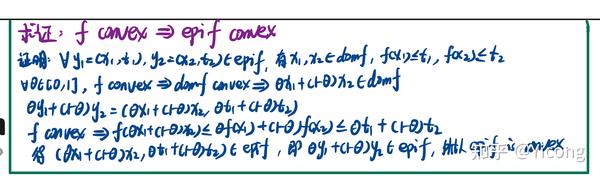 求证: f convex ⇒ epif convex
证明: ∀ y₁=(x₁,t₁), y₂=(x₂,t₂)∈epif, 有x₁,x₂∈domf, f(x₁)≤t₁, f(x₂)≤t₂
∀θ∈[0,1], f convex ⇒ domf convex ⇒ θx₁+(1-θ)x₂∈domf
θy₁+(1-θ)y₂=(θx₁+(1-θ)x₂, θt₁+(1-θ)t₂)
f convex ⇒ f(θx₁+(1-θ)x₂)≤θf(x₁)+(1-θ)f(x₂)≤θt₁+(1-θ)t₂
(θx₁+(1-θ)x₂, θt₁+(1-θ)t₂)∈epif, 即θy₁+(1-θ)y₂∈epif, epif is convex
知乎